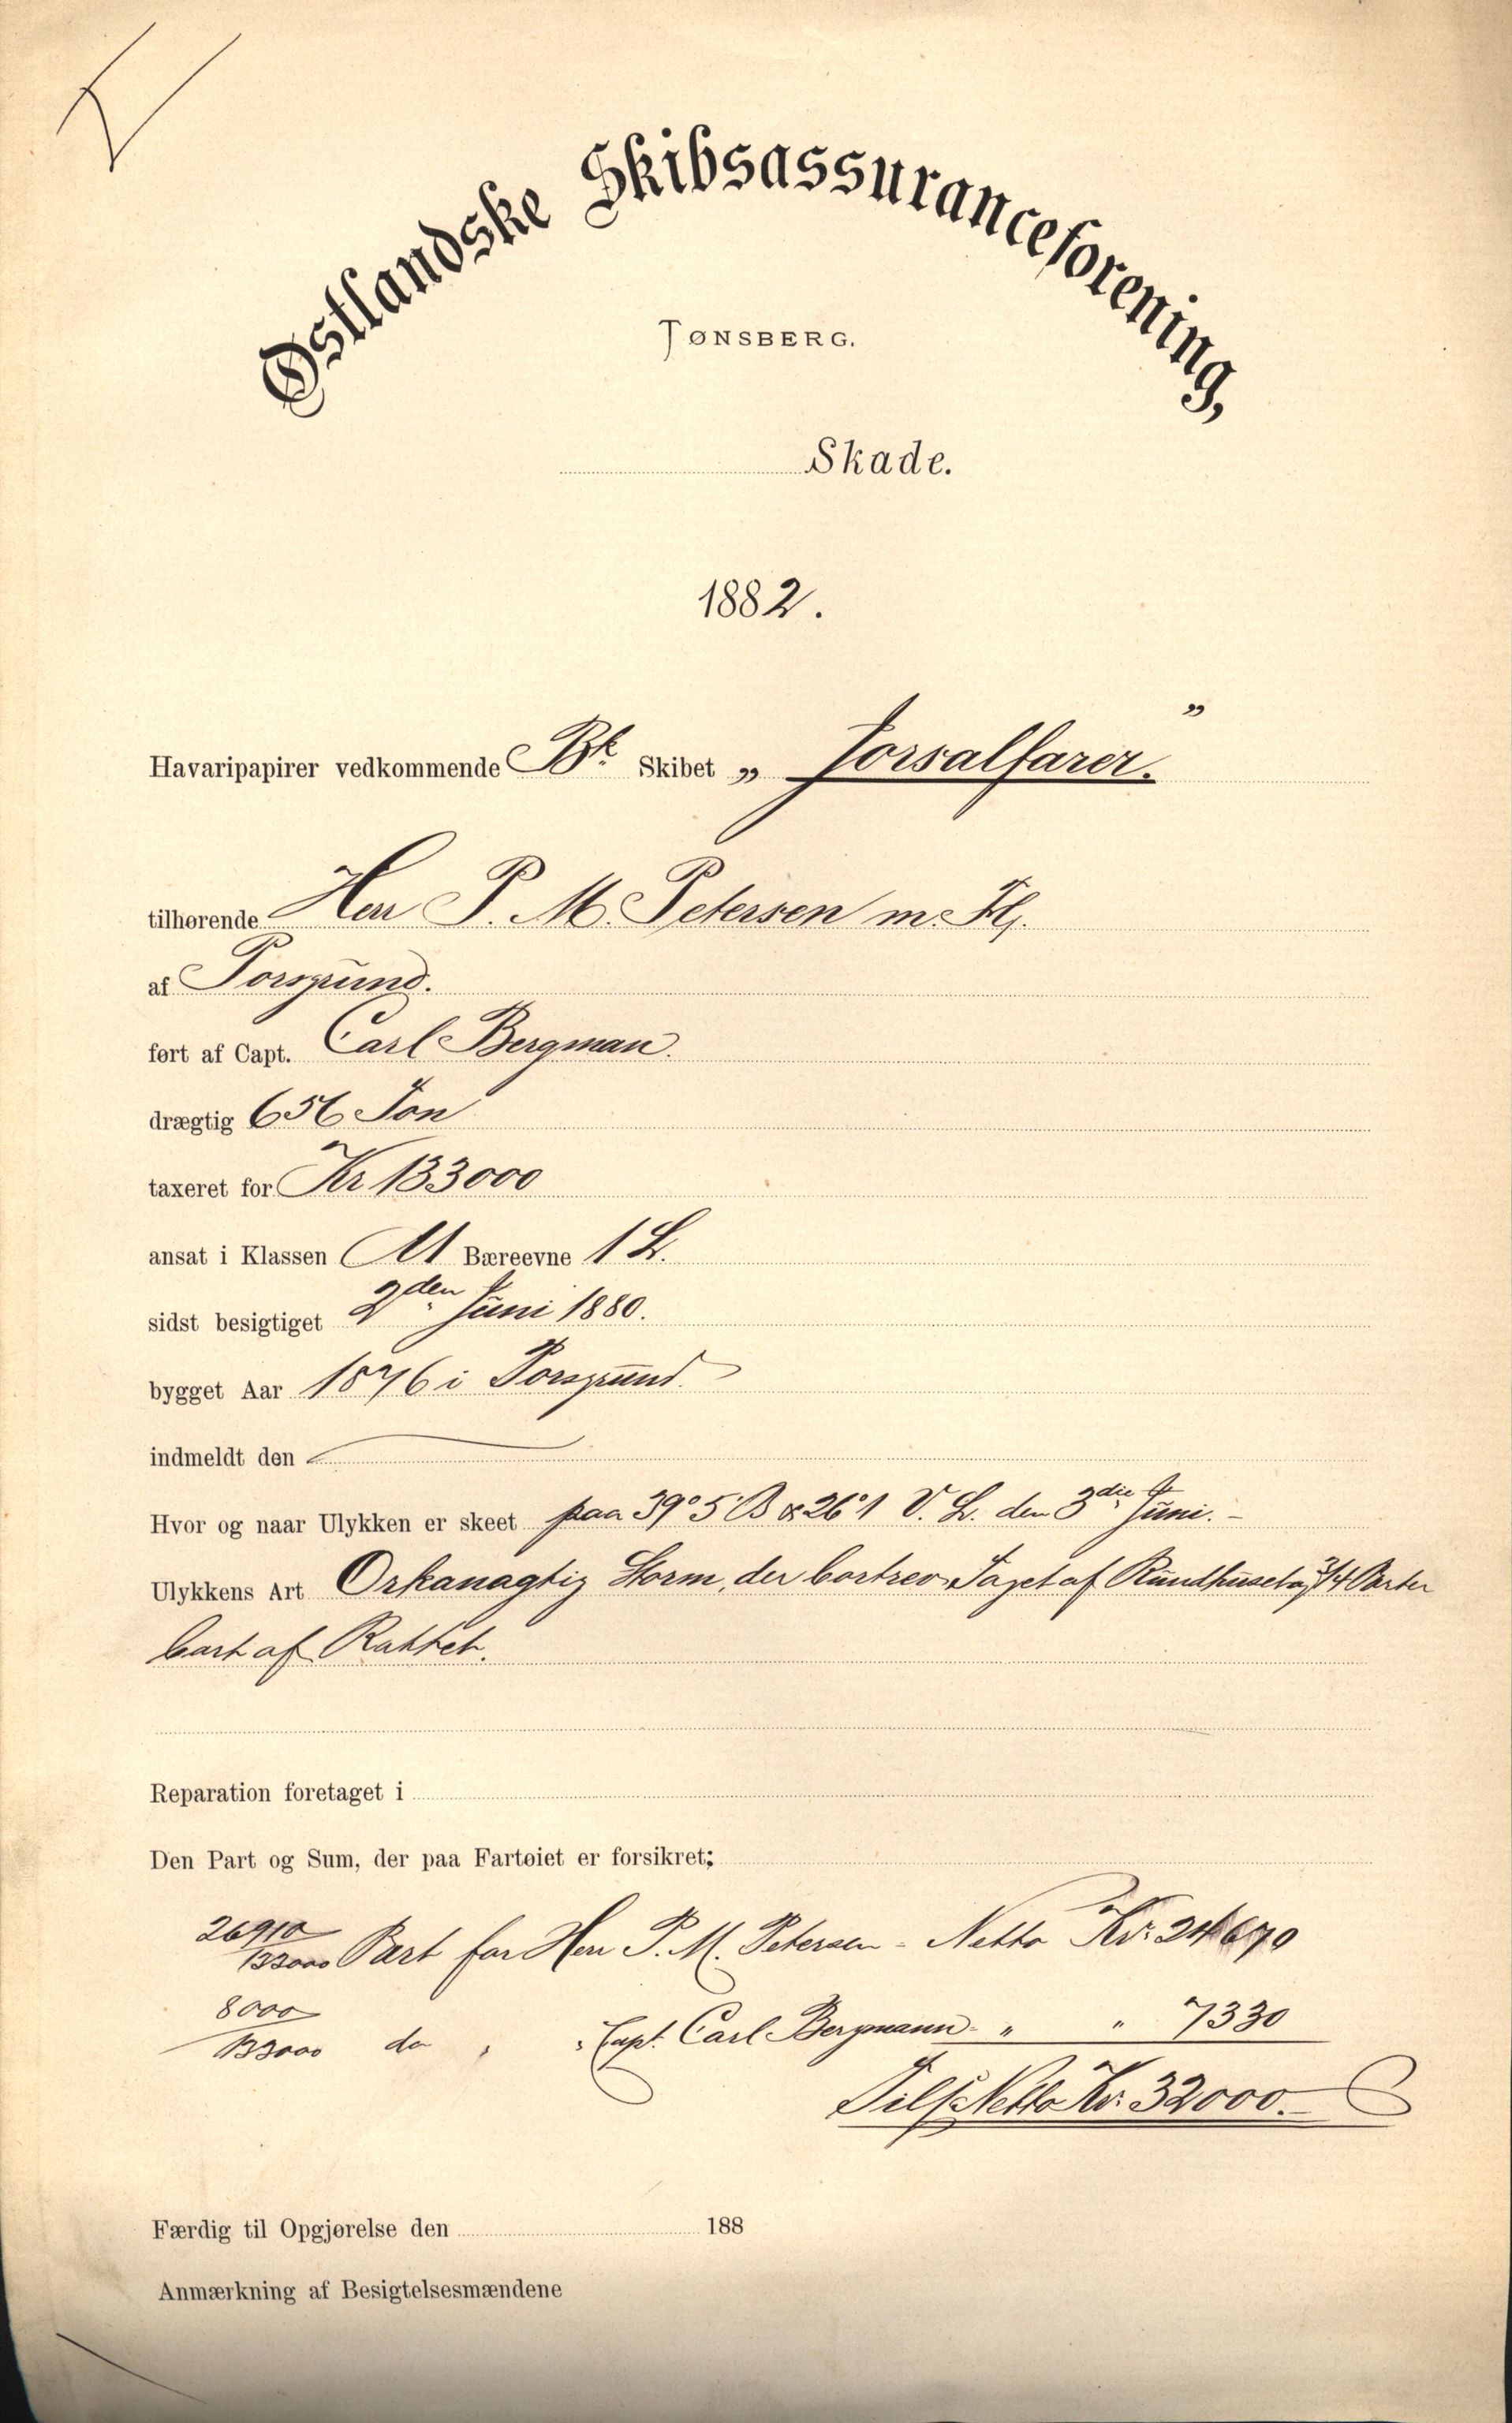 Østlandske Skibsassuranceforening,
TØNSBERG.
Skade.
1882.
Havaripapirer vedkommende Bk. Skibet „ Jorsalfarer. "
tilhørende Herr P. M. Petersen m. Fl.
af Porsgrund.
ført af Capt. Carl Bergman.
drægtig 656 Ton
taxeret for Kr 133000
ansat i Klassen A1 Bæreevne 1 L.
sidst besigtiget 2den Juni 1880.
bygget Aar 1876 i Porsgrund.
indmeldt den
Hvor og naar Ulykken er skeet paa 39° 5' B & 26° 1 V. L. den 3die Juni. -
Ulykkens Art Orkanagtig Storm, der bortrev Taget af Rundhuset og 3/4 Parter
bort af Rækket.
Reparation foretaget i
Den Part og Sum, der paa Fartøiet er forsikret;
26910/133000 Part for Herr P. M. Petersen - Netto Kr. 24670
8000/133000 do " " Capt. Carl Bergmann - " " 7330
Tils. Netto Kr. 32000.-
Færdig til Opgjørelse den 188
Anmærkning af Besigtelsesmændene